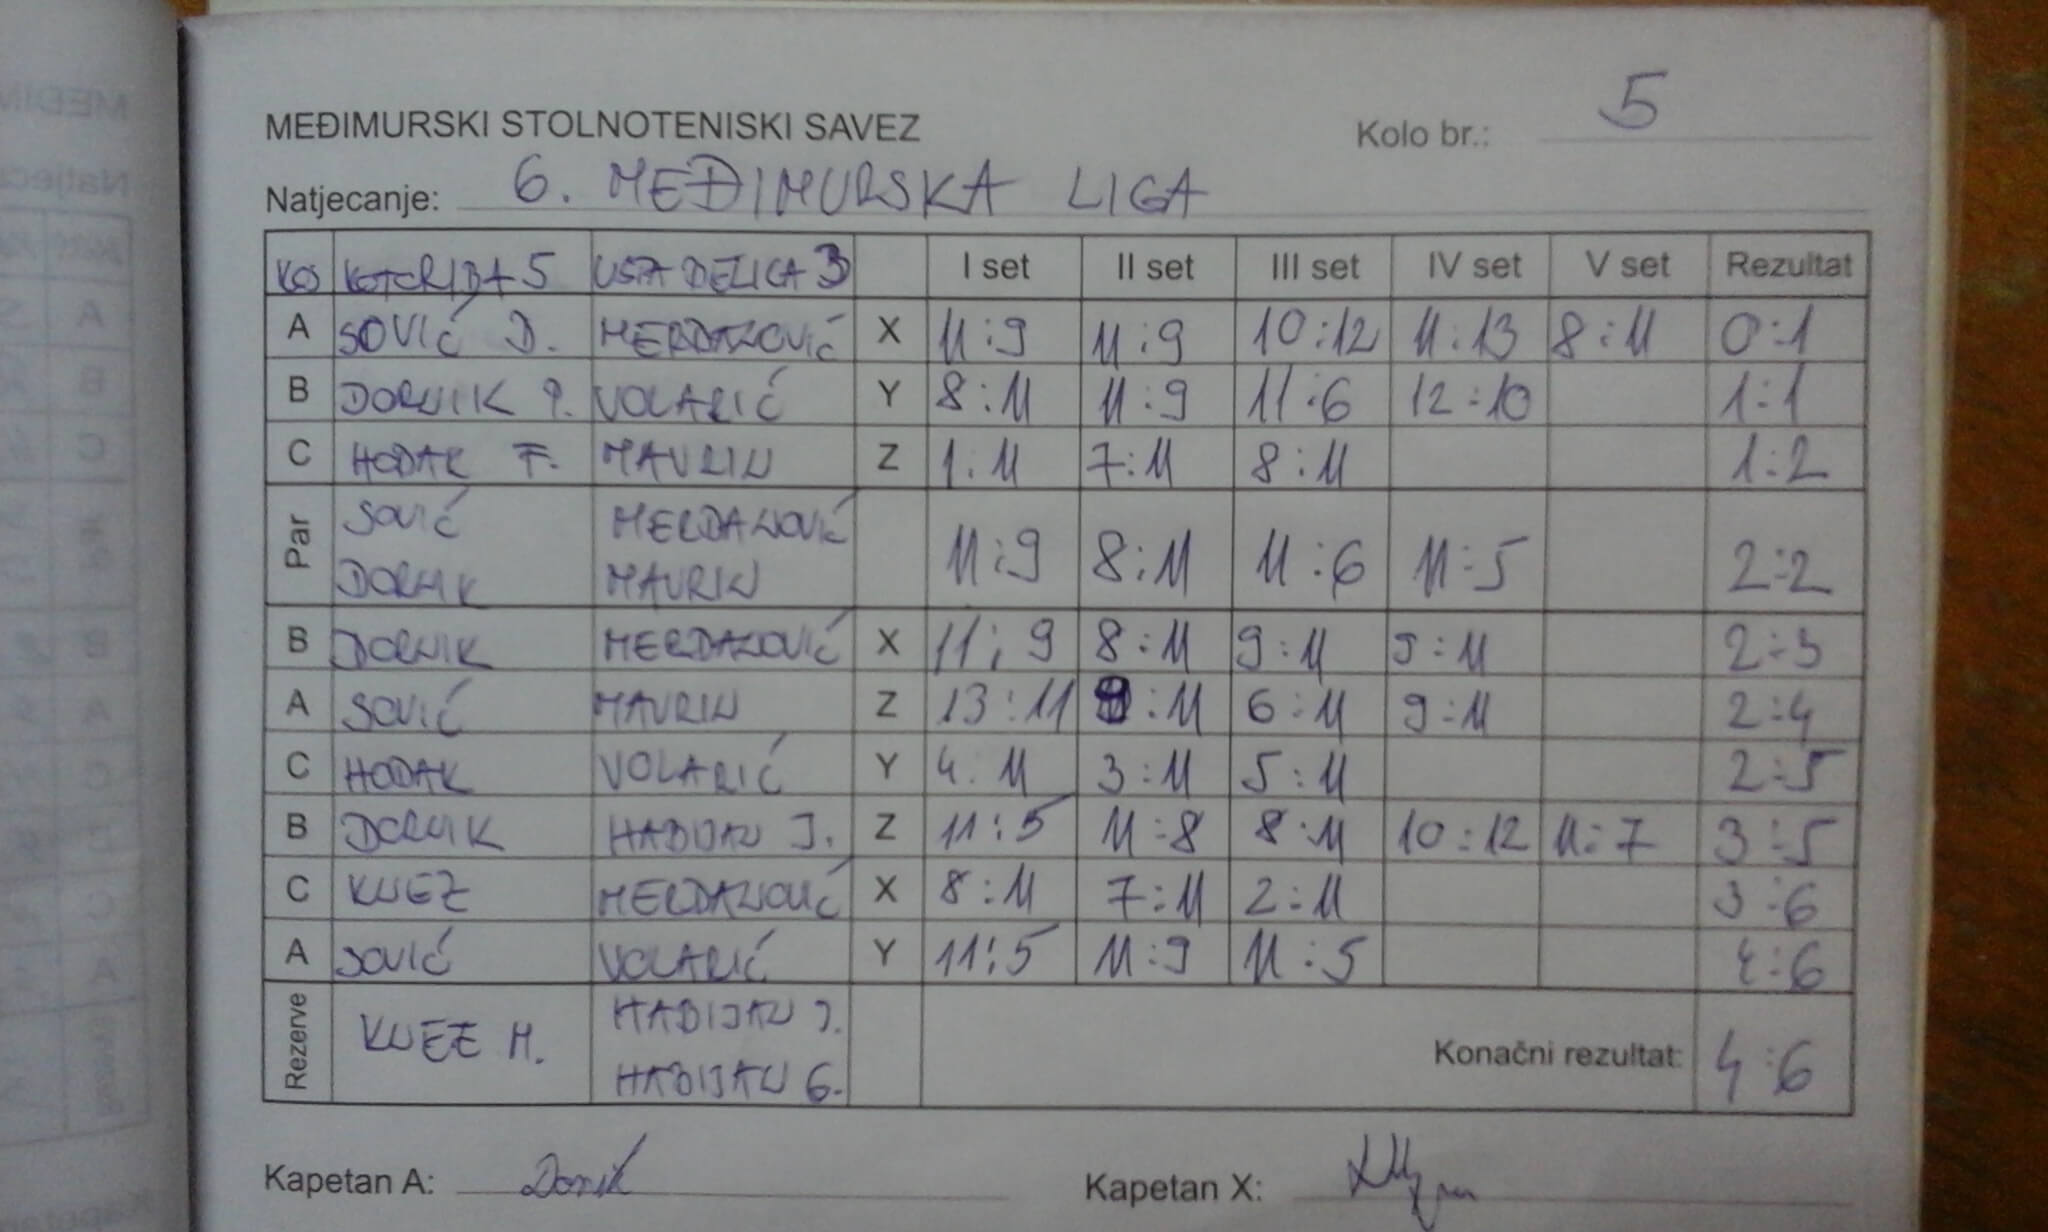 MEĐIMURSKI STOLNOTENISKI SAVEZ Kolo br.: 5
Natjecanje: 6. MEĐIMURSKA LIGA
KOTORIBA 5 I set II set III set IV set V set Rezultat
A SOVIĆ D. MERDANOVIĆ X 11:9 11:9 10:12 11:13 8:11 0:1
B DORNIK P. VOLARIĆ Y 8:11 11:9 11:6 12:10 1:1
C HODAK F. MAVRIN Z 1:11 7:11 8:11 1:2
Par SOVIĆ MERDANOVIĆ
DORNIK MAVRIN 11:9 8:11 11:6 11:5 2:2
B DORNIK MERDANOVIĆ X 11:9 8:11 9:11 9:11 2:3
A SOVIĆ MAVRIN Z 13:11 :11 6:11 9:11 2:4
C HODAK VOLARIĆ Y 4:11 3:11 5:11 2:5
B DORNIK HABIJAN J. Z 11:5 11:8 8:11 10:12 11:7 3:5
C KNEZ MERDANOVIĆ X 8:11 7:11 2:11 3:6
A SOVIĆ VOLARIĆ Y 11:5 11:9 11:5 4:6
Rezerve KNEZ M. HABIJAN J.
HABIJAN G.
Konačni rezultat: 4:6
Kapetan A: Dornik Kapetan X: